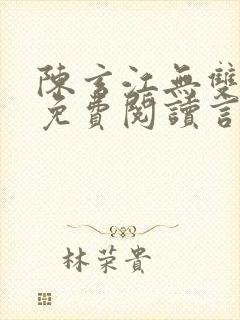 陳玄江無雙
免費閱讀言
林荣貴